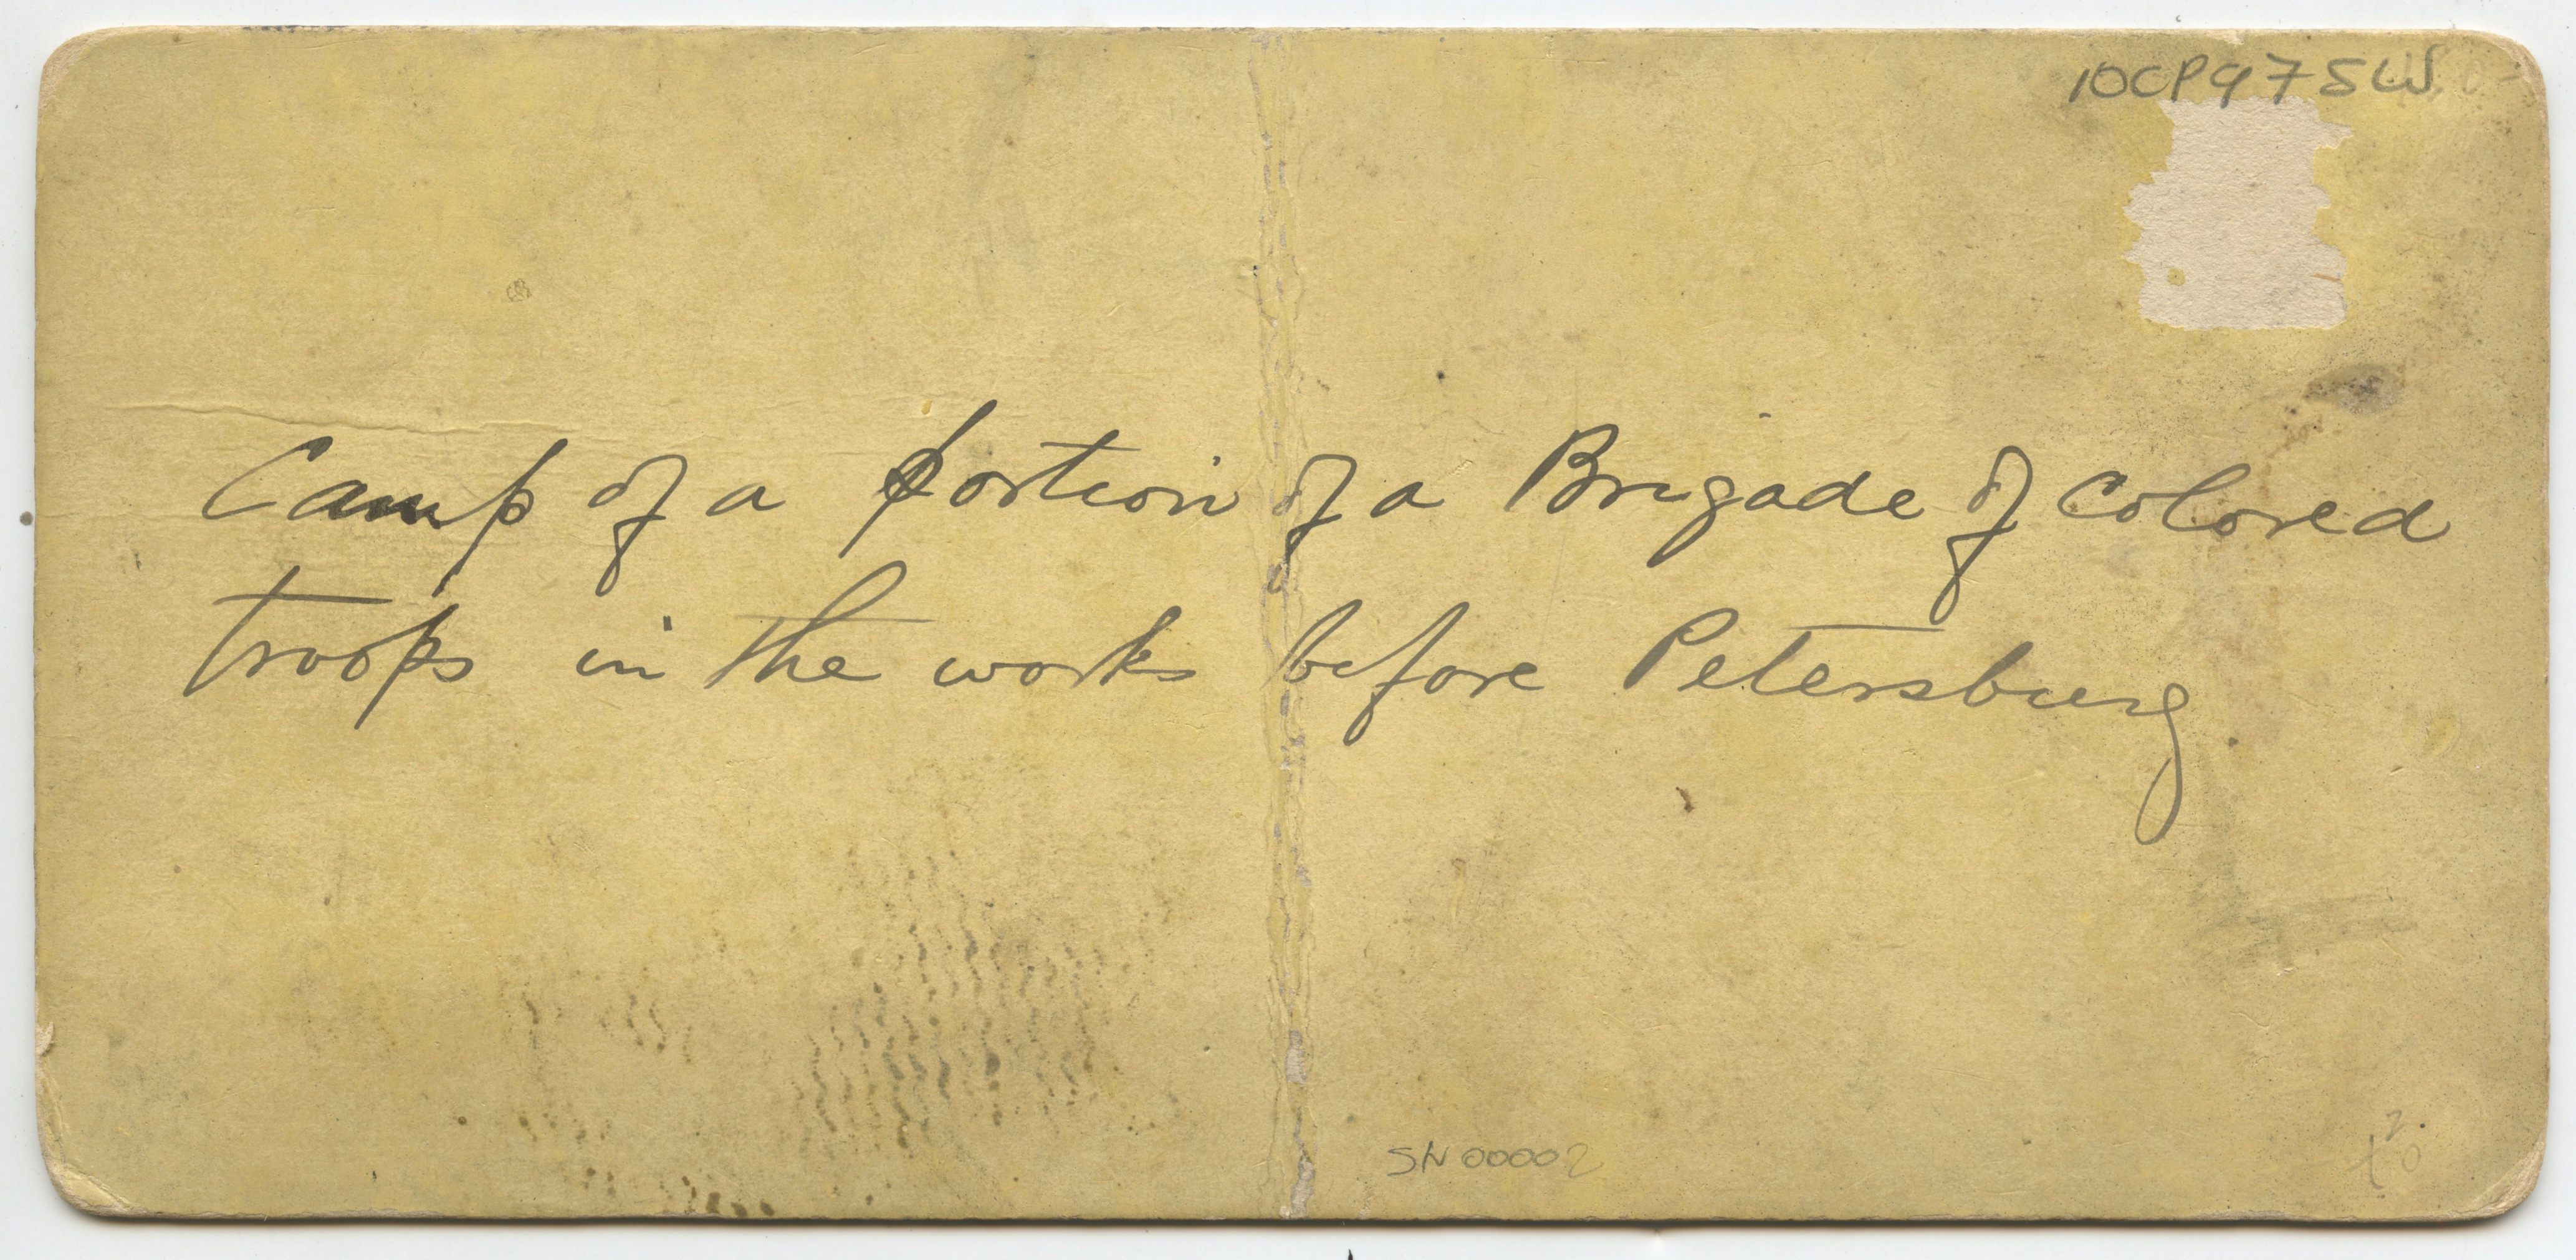 10CP975W
Camp of a portion of a Brigade of Colored
troops in the works before Petersburg.
SN00002